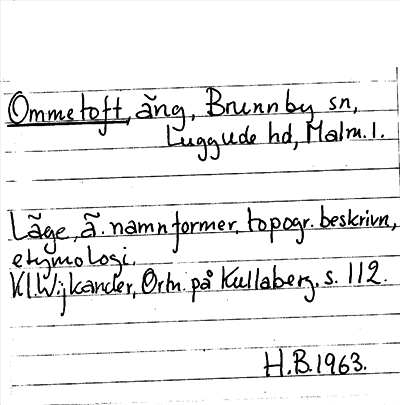 Ommetoft, äng, Brunnby sn,
Luggude hd, Malm. l.
Läge, ä. namnformer, topogr. beskrivn,
etymologi.
Kl. Wijkander, Ortn. på Kullaberg, s. 112.
H.B. 1963.